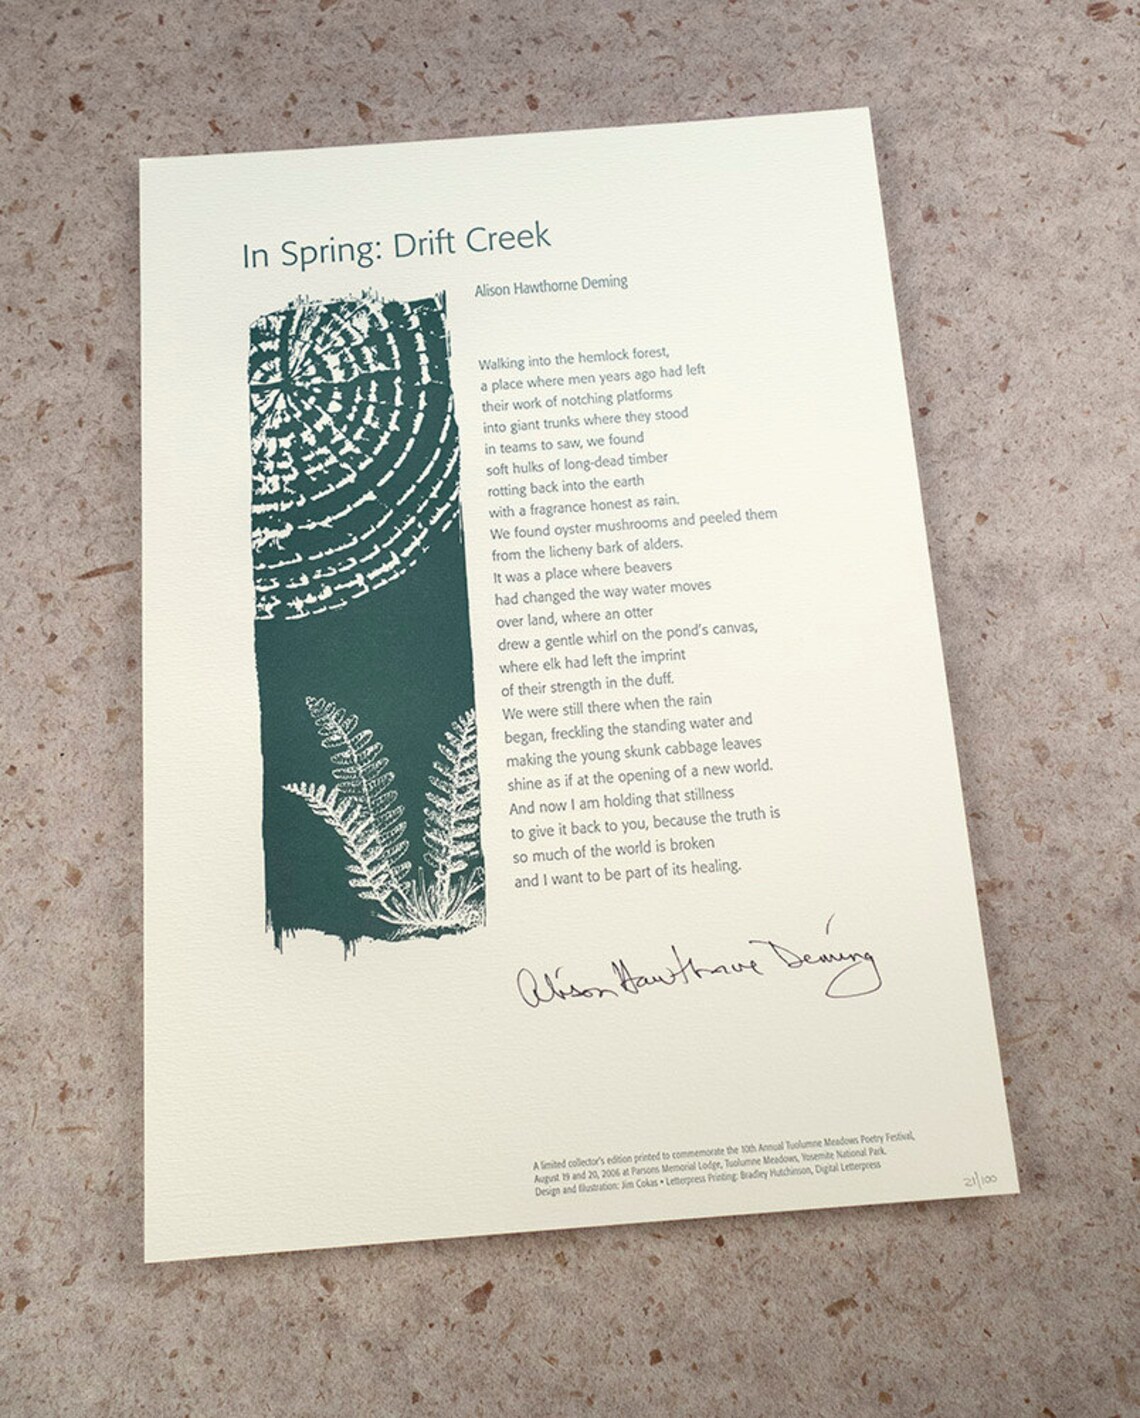 In Spring: Drift Creek
Alison Hawthorne Deming
Walking into the hemlock forest,
a place where men years ago had left
their work of notching platforms
into giant trunks where they stood
in teams to saw, we found
soft hulks of long-dead timber
rotting back into the earth
with a fragrance honest as rain.
We found oyster mushrooms and peeled them
from the licheny bark of alders.
It was a place where beavers
had changed the way water moves
over land, where an otter
drew a gentle whirl on the pond's canvas,
where elk had left the imprint
of their strength in the duff.
We were still there when the rain
began, freckling the standing water and
making the young skunk cabbage leaves
shine as if at the opening of a new world.
And now I am holding that stillness
to give it back to you, because the truth is
so much of the world is broken
and I want to be part of its healing.
Alison Hawthorne Deming
A limited collector's edition printed to commemorate the 10th Annual Tuolumne Meadows Poetry Festival,
August 19 and 20, 2006 at Parsons Memorial Lodge, Tuolumne Meadows, Yosemite National Park.
Design and Illustration: Jim Cokas • Letterpress Printing: Bradley Hutchinson, Digital Letterpress
21/100